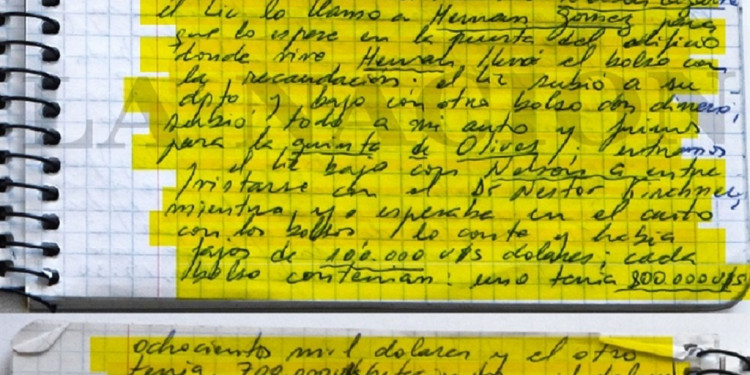 el Lic lo llamo a Hernan Gomez para
que lo espere en la puerta del edificio
donde vive Hernan llevó el bolso con
la recaudacion; el Lic subió a su
dpto y bajo con otro bolso con dinero,
subio todo a mi auto y fuimos
para la quinta de Olivos; entramos
y el Lic bajo con Nelson a entre
vistarse con el Dr Nestor Kirchner,
mientras yo esperaba en el auto
con los bolsos, lo conte y habia
fajos de 100.000 U$S dolares; cada
bolso contenian: uno tenia 800.000 U$S
LA NACION
ochocientos mil dolares y el otro
tenia 700.000